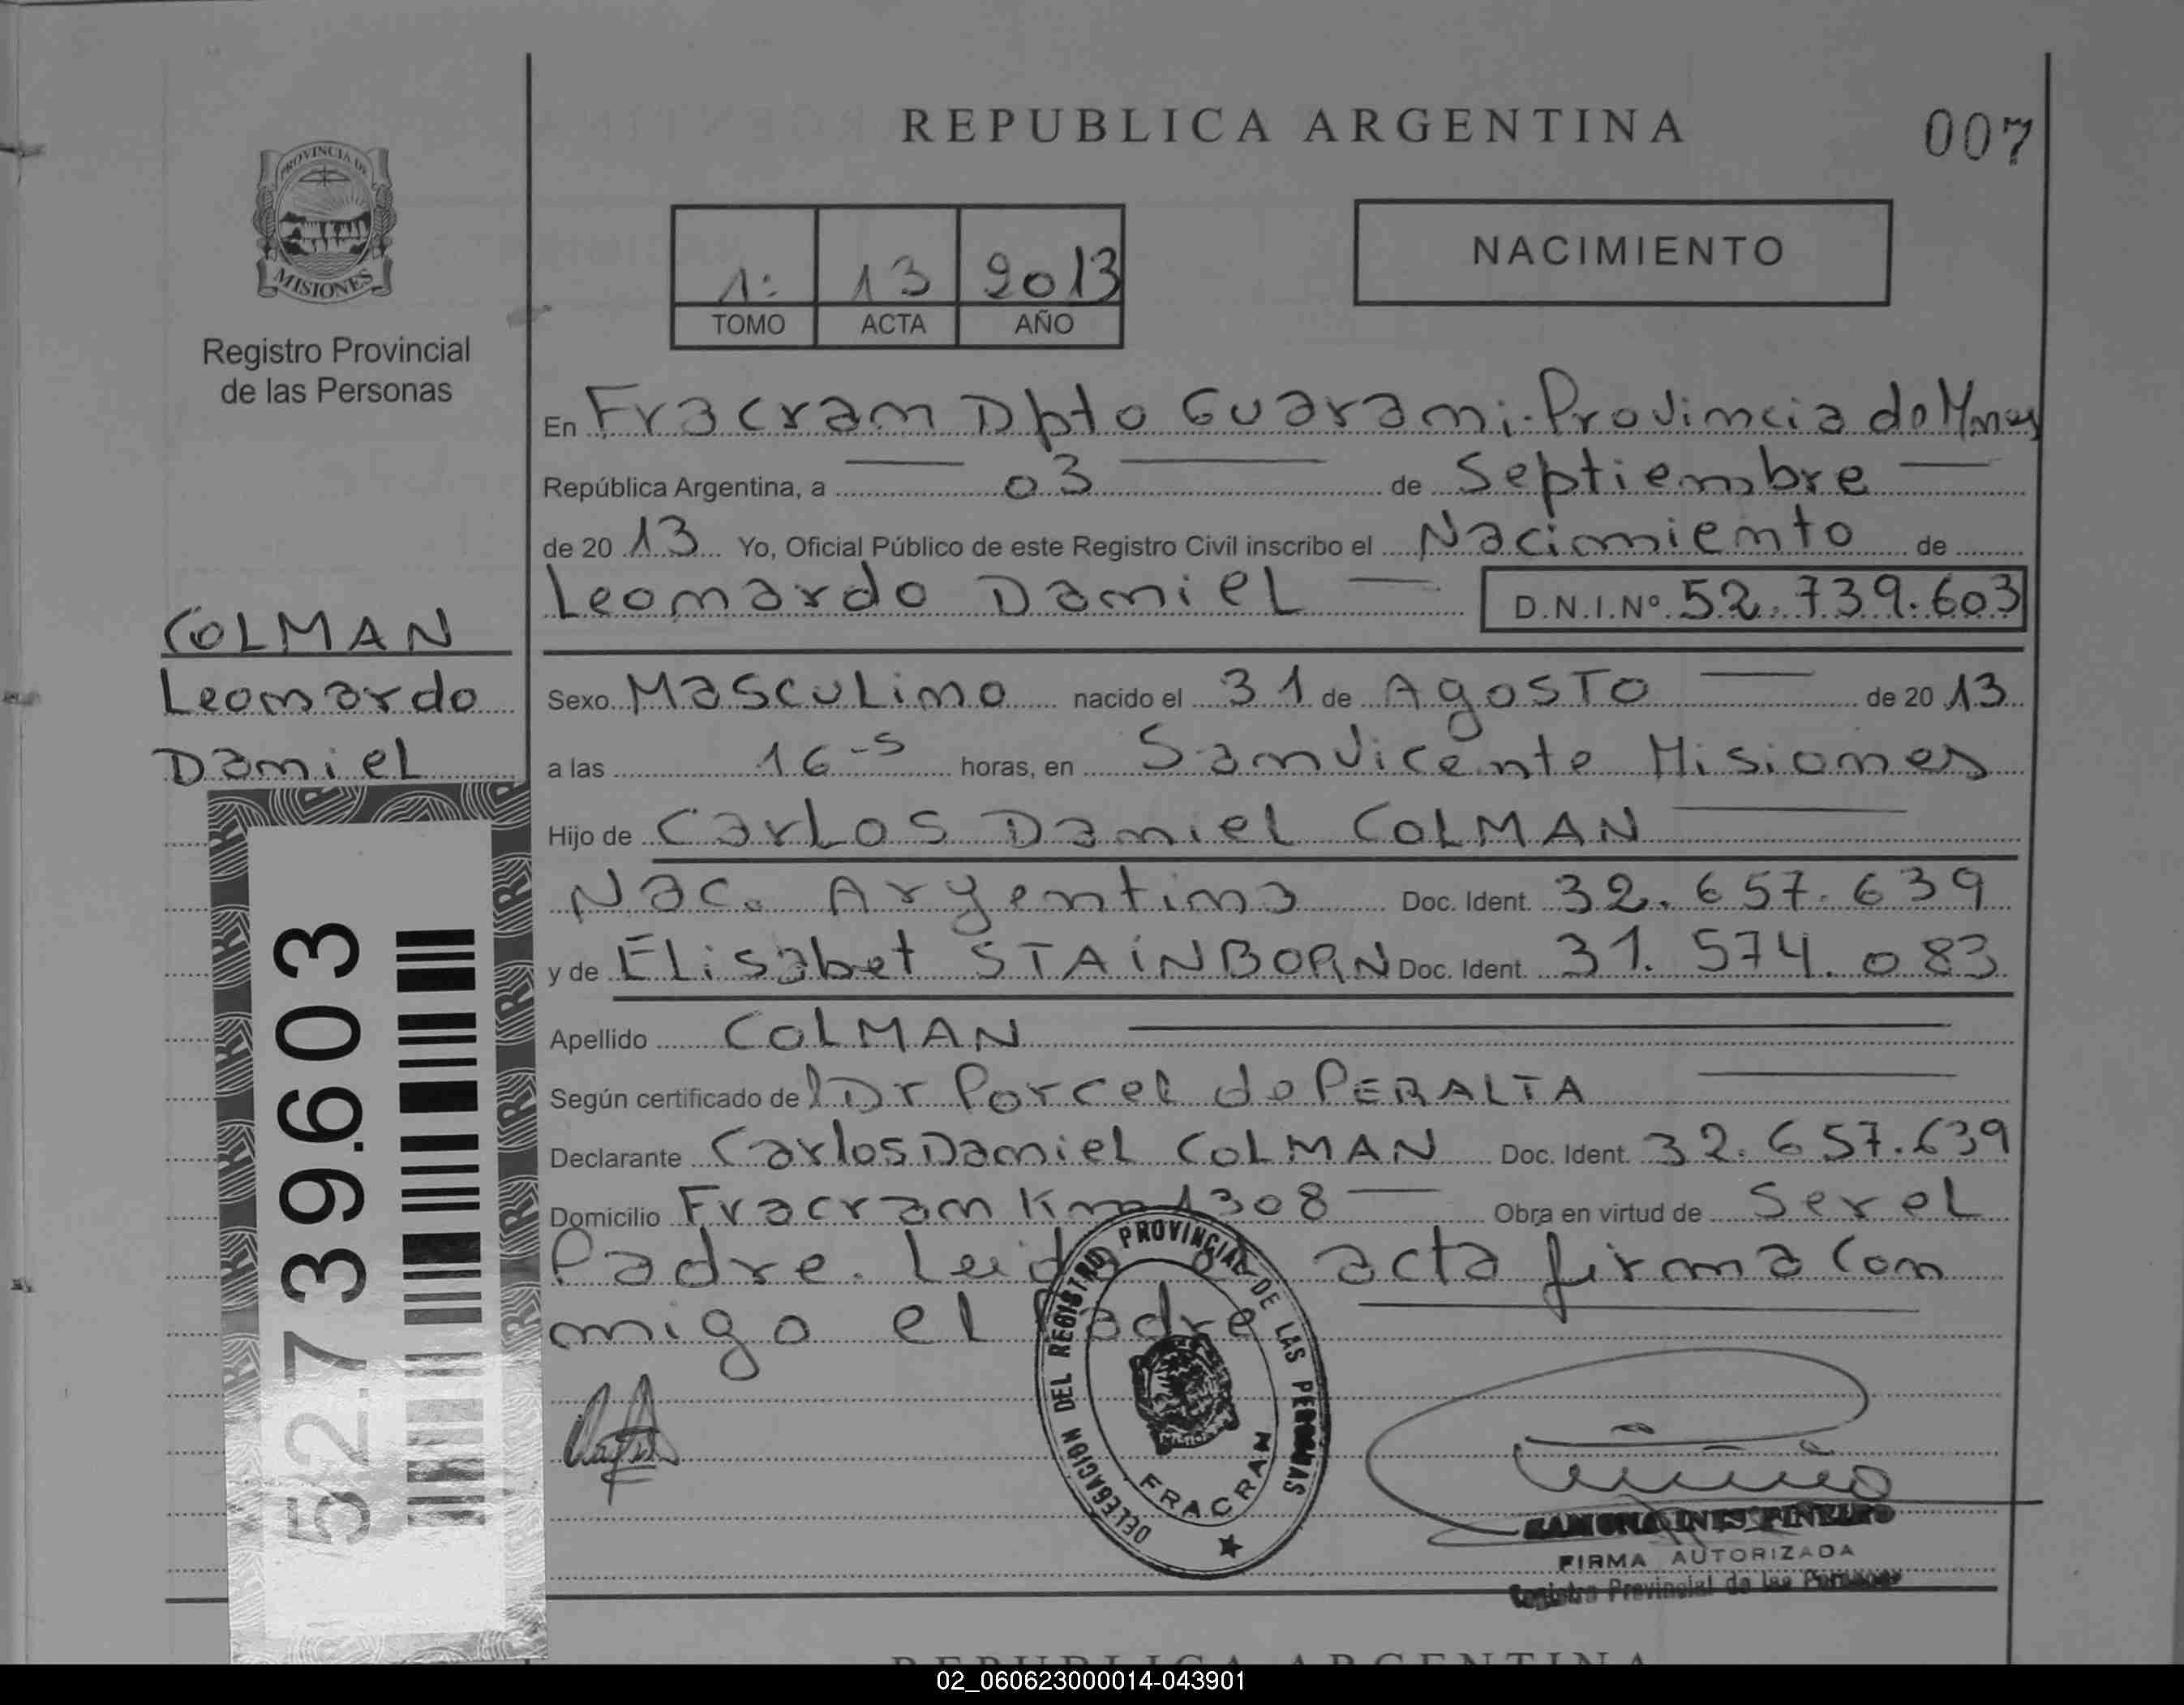 REPUBLICA ARGENTINA
007
PROVINCIA DE
MISIONES
Registro Provincial
de las Personas
1: 13 2013
TOMO ACTA AÑO
NACIMIENTO
En Fracram Dpto Guarami. Provimcia de Mnes
República Argentina, a 03 de Septiembre
de 20 13 Yo, Oficial Público de este Registro Civil inscribo el Nacimiento de
Leonardo Daniel D.N.I.Nº 52.739.603
COLMAN
Leonardo
Daniel
Sexo Masculino nacido el 31 de Agosto de 20 13
a las 16-5 horas, en San Vicente Misiones
Hijo de Carlos Daniel COLMAN
Nac. Argentina Doc. Ident. 32.657.639
y de Elisabet STAINBORN Doc. Ident. 31.574.083
Apellido COLMAN
Según certificado del Dr Porcel de PERALTA
Declarante Carlos Daniel COLMAN Doc. Ident. 32.657.639
Domicilio Fracran Km 1308 Obra en virtud de Ser el
Padre. Leida el acta firma con
migo el Padre
52.739.603
DELEGACION DEL REGISTRO PROVINCIAL DE LAS PERSONAS
FRACRAN
RAMONA INES PINEIRO
FIRMA AUTORIZADA
Registro Provincial de las Personas
REPUBLICA ARGENTINA
02_060623000014-043901